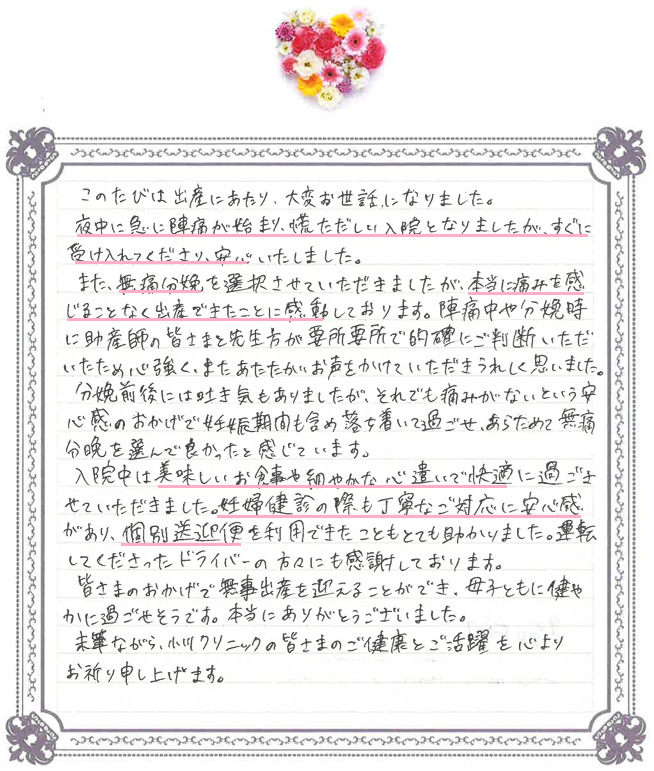 このたびは出産にあたり、大変お世話になりました。
夜中に急に陣痛が始まり、慌ただしい入院となりましたが、すぐに
受け入れてくださり、安心いたしました。
また、無痛分娩を選択させていただきましたが、本当に痛みを感
じることなく出産できたことに感動しております。陣痛中や分娩時
に助産師の皆さまと先生方が要所要所で的確にご判断いただ
いたため心強く、またあたたかいお声をかけていただきうれしく思いました。
分娩前後には吐き気もありましたが、それでも痛みがないという安
心感のおかげで妊娠期間も含め落ち着いて過ごせ、あらためて無痛
分娩を選んで良かったと感じています。
入院中は美味しいお食事や細やかな心遣いで快適に過ごさ
せていただきました。妊婦健診の際も丁寧なご対応に安心感
があり、個別送迎便を利用できたこともとても助かりました。運転
してくださったドライバーの方々にも感謝しております。
皆さまのおかげで無事出産を迎えることができ、母子ともに健や
かに過ごせそうです。本当にありがとうございました。
末筆ながら、小川クリニックの皆さまのご健康とご活躍を心より
お祈り申し上げます。